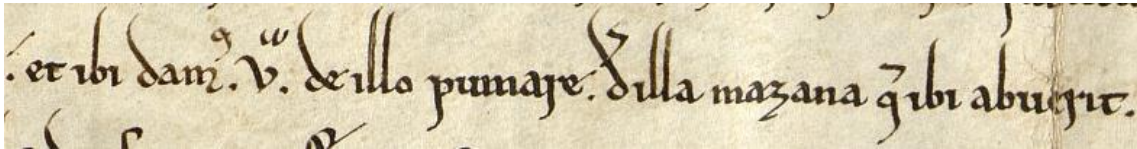 . et ibi damꝰ . vͣ . de illo pumare . đ illa mazana q̄ ibi abuerit .